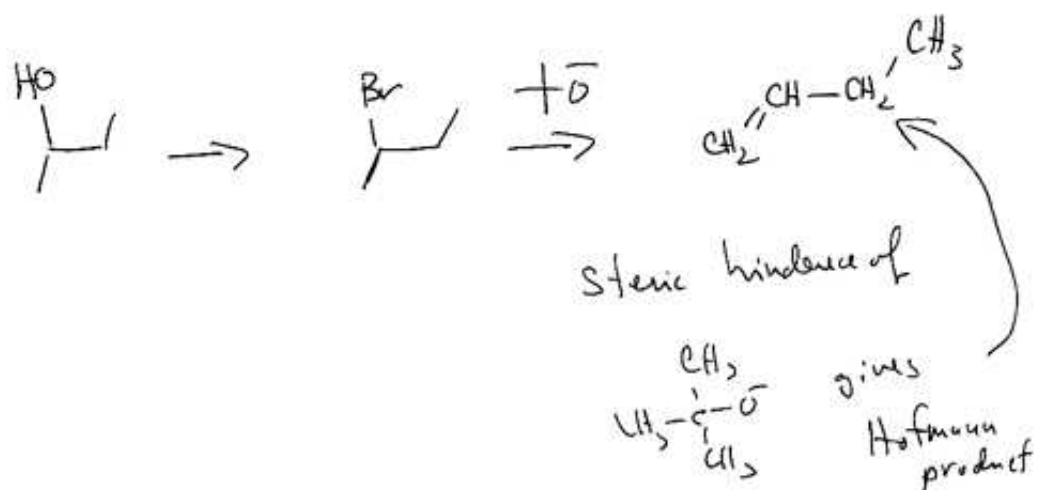 HO
Br
+O⁻
CH3
CH2=CH—CH2
steric hindence of
CH3
CH3—C—O⁻ gives
CH3
Hofmann
product